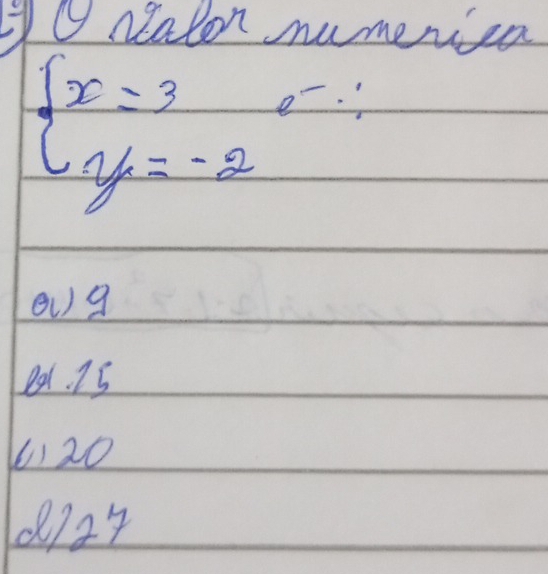 O Valor numerica
x = 3 é :
y = -2
a) 9
b) 15
c) 20
d) 27